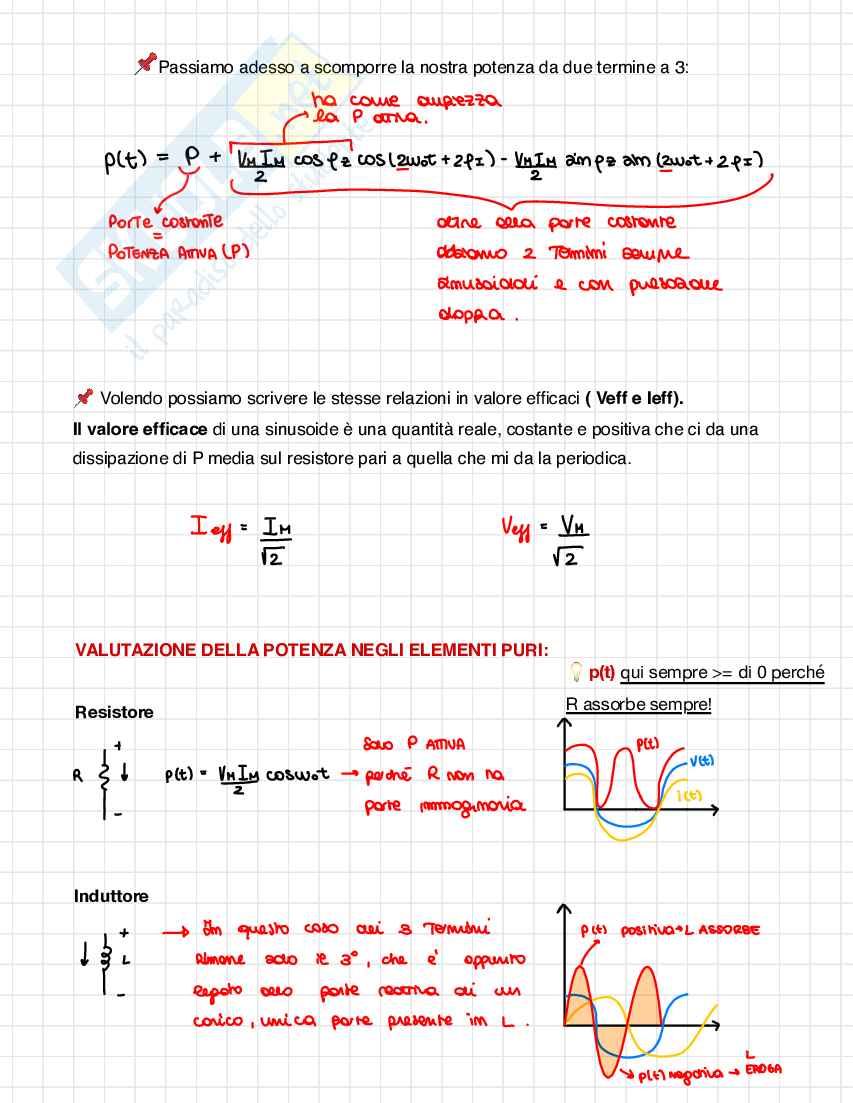 Passiamo adesso a scomporre la nostra potenza da due termine a 3:
ha come ampiezza
la P attiva.
p(t) = P + V_M I_M/2 cos φz cos(2ω₀t + 2φI) - V_M I_M/2 sin φz sin (2ω₀t + 2φI)
PARTE COSTANTE
=
POTENZA ATTIVA (P)
oltre alla parte costante
abbiamo 2 Termini sempre
sinusoidali e con pulsazione
doppia.
SKUOLA.net
il paradiso dello studente
Volendo possiamo scrivere le stesse relazioni in valore efficaci ( Veff e Ieff).
Il valore efficace di una sinusoide è una quantità reale, costante e positiva che ci da una
dissipazione di P media sul resistore pari a quella che mi da la periodica.
I eff = I_M/√2
V eff = V_M/√2
VALUTAZIONE DELLA POTENZA NEGLI ELEMENTI PURI:
p(t) qui sempre >= di 0 perché
R assorbe sempre!
Resistore
R + -
p(t) = V_M I_M/2 cos ω₀t →
Solo P ATTIVA
perché R non ha
parte immaginaria
p(t)
v(t)
i(t)
Induttore
L + -
→ In questo caso dei 3 Termini
Rimane solo il 3°, che è appunto
legato alla parte reattiva di un
carico, unica parte presente in L.
p(t) positiva → L ASSORBE
p(t) negativa → L
EROGA